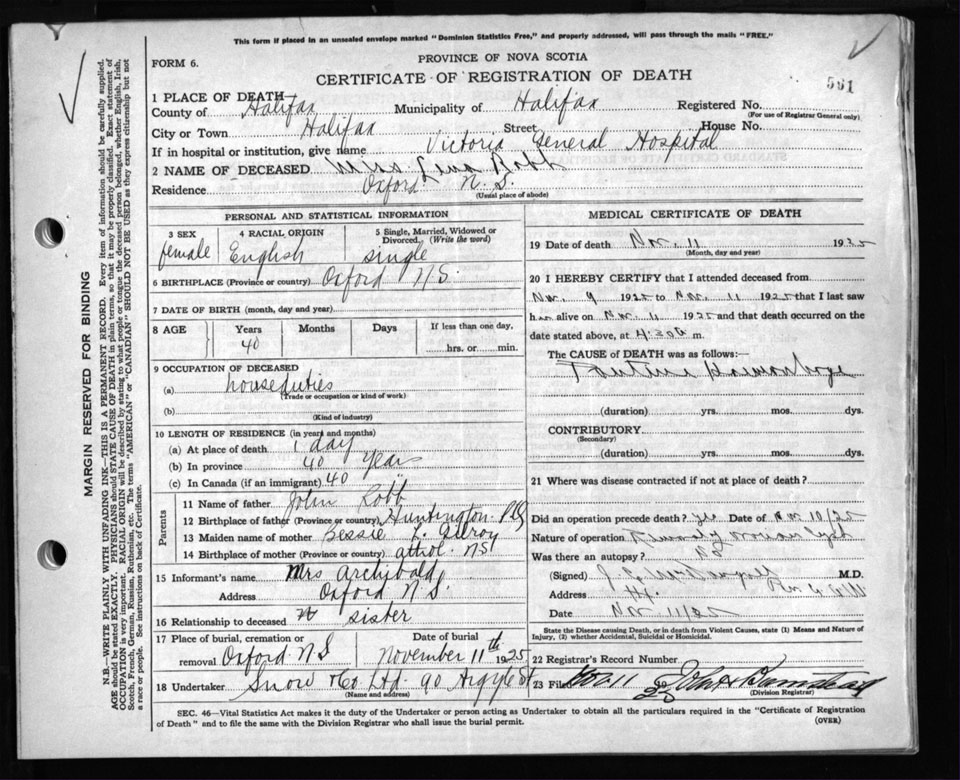 This form if placed in an unsealed envelope marked "Dominion Statistics Free," and properly addressed, will pass through the mails "FREE."
FORM 6.
PROVINCE OF NOVA SCOTIA
CERTIFICATE OF REGISTRATION OF DEATH
561
1 PLACE OF DEATH—
County of Halifax Municipality of Halifax Registered No.
(For use of Registrar General only)
City or Town Halifax Street House No.
If in hospital or institution, give name Victoria General Hospital
2 NAME OF DECEASED Miss Lena Robb
Residence Oxford N.S.
(Usual place of abode)
PERSONAL AND STATISTICAL INFORMATION
3 SEX female
4 RACIAL ORIGIN English
5 Single, Married, Widowed or Divorced. (Write the word) single
6 BIRTHPLACE (Province or country) Oxford N.S.
7 DATE OF BIRTH (month, day and year)
8 AGE Years 40 Months Days If less than one day, hrs. or min.
9 OCCUPATION OF DECEASED
(a) houseduties
(Trade or occupation or kind of work)
(b)
(Kind of industry)
10 LENGTH OF RESIDENCE (in years and months)
(a) At place of death 1 day
(b) In province 40 years
(c) In Canada (if an immigrant) 40
Parents
11 Name of father John Robb
12 Birthplace of father (Province or country) Huntington
13 Maiden name of mother Bessie L. Gilroy
14 Birthplace of mother (Province or country) athol N.S
15 Informant's name Mrs Archibald
Address Oxford N.S.
16 Relationship to deceased sister
17 Place of burial, cremation or removal Oxford N S
Date of burial November 11th 1925
18 Undertaker Snow & Co Ltd. 90 Argyle St
(Name and address)
MEDICAL CERTIFICATE OF DEATH
19 Date of death Nov. 11 1925
(Month, day and year)
20 I HEREBY CERTIFY that I attended deceased from
Nov. 9 1925 to Nov. 11 1925 that I last saw
her alive on Nov. 11 1925 and that death occurred on the
date stated above, at 4:30 a m.
The CAUSE of DEATH was as follows:—
(duration) yrs. mos. dys.
CONTRIBUTORY.
(Secondary)
(duration) yrs. mos. dys.
21 Where was disease contracted if not at place of death?
Did an operation precede death? yes Date of Nov 10/25
Nature of operation
Was there an autopsy? No
(Signed) M.D.
Address Hfx.
Date Nov 11/25
State the Disease causing Death, or in death from Violent Causes, state (1) Means and Nature of Injury, (2) whether Accidental, Suicidal or Homicidal.
22 Registrar's Record Number
23 Filed Nov. 11
(Division Registrar)
SEC. 46—Vital Statistics Act makes it the duty of the Undertaker or person acting as Undertaker to obtain all the particulars required in the "Certificate of Registration
of Death" and to file the same with the Division Registrar who shall issue the burial permit.
(OVER)
MARGIN RESERVED FOR BINDING
N.B.—WRITE PLAINLY WITH UNFADING INK—THIS IS A PERMANENT RECORD. Every item of information should be carefully supplied.
AGE should be stated EXACTLY. PHYSICIANS should STATE CAUSE OF DEATH in plain terms, so that it may be properly classified. Exact statement of
OCCUPATION is very important. RACIAL ORIGIN will be described by stating to what people or tongue the deceased person belonged, whether English, Irish,
Scotch, French, German, Russian, Ruthenian, etc. The terms "AMERICAN" or "CANADIAN" SHOULD NOT BE USED as they express citizenship but not
a race or people. See instructions on back of Certificate.